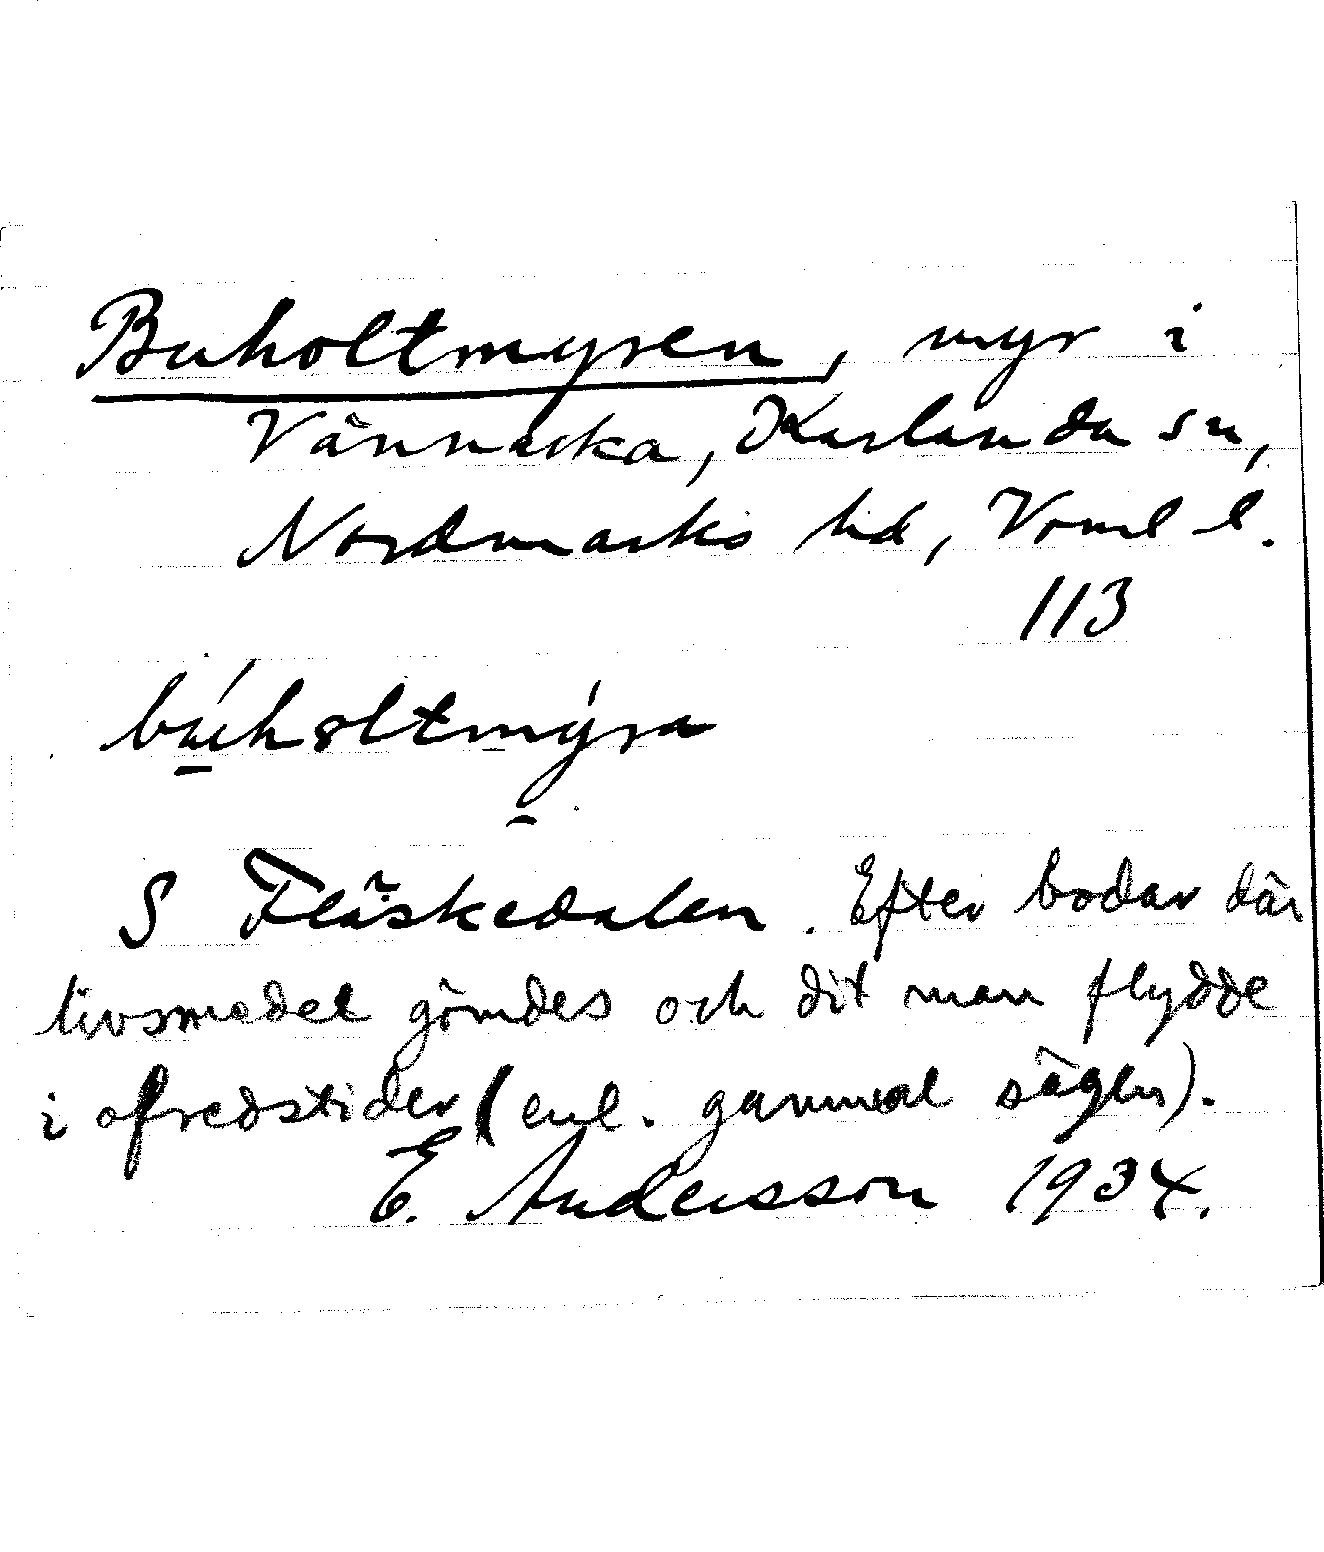 Buholtmyren, myr i
Vännacka, Karlanda sn,
Nordmarks hd, Vrml l.
113
búholtmýra
S Fläskedalen. Efter bodar där
livsmedel gömdes och dit man flydde
i ofredstider (enl. gammal sägen).
E. Andersson 1934.